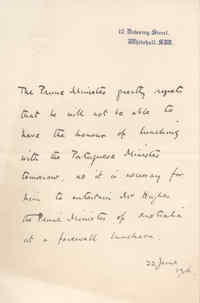 10 Downing Street,
Whitehall. S.W.
The Prime Minister greatly regrets
that he will not be able to
have the honour of lunching
with the Portuguese Minister
tomorrow, as it is necessary for
him to entertain Mr Hughes
the Prime Minister of Australia
at a farewell luncheon.
22 June
1916